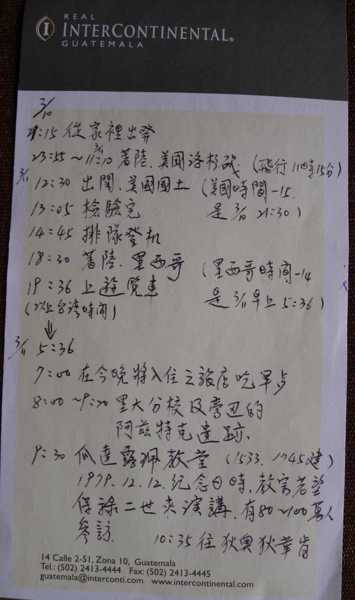 REAL
INTERCONTINENTAL®
GUATEMALA
3/10
21:15 從家裡出發
23:55 ~ 11:10 著陸、美國洛杉磯 (飛行11時15分)
3/11 12:30 出關、美國國土 (美國時間-15
13:05 檢驗完 是 3/10 21:30)
14:45 排隊登机
18:30 著陸、墨西哥 (墨西哥時間-14
19:36 上遊覽車 是 3/11 早上 5:36)
(以上台湾時間)
3/11 5:36
7:00 在今晚將入住之旅店吃早点
8:00 ~ 9:20 墨大分校及旁边的
阿兹特克遺跡.
9:30 瓜達露佩教堂 (1533、1745建)
1979.12.12.纪念日時、教宗若望
保祿二世來演講、有80~100萬人
參訪. 10:35往狄奧狄華肯
14 Calle 2-51, Zona 10, Guatemala
Tel.: (502) 2413-4444 Fax: (502) 2413-4445
guatemala@interconti.com www.intercontinental.com